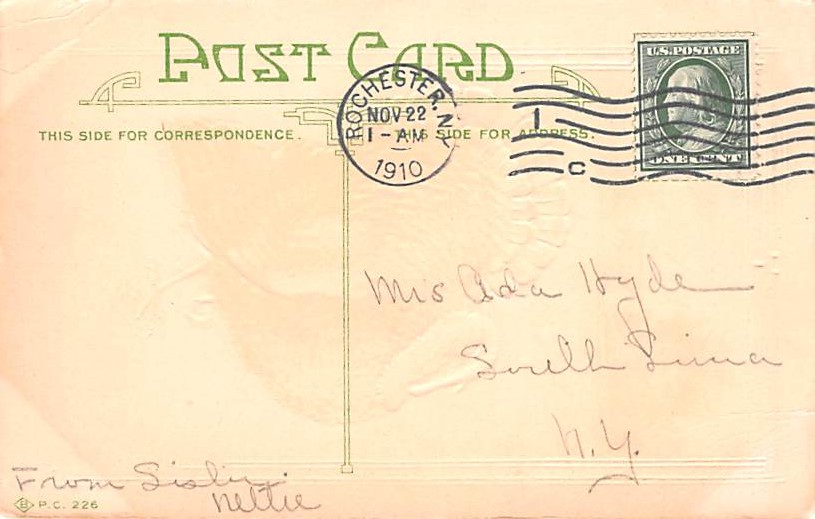 POST CARD
THIS SIDE FOR CORRESPONDENCE.
THIS SIDE FOR ADDRESS.
ROCHESTER, N.Y.
NOV 22
1 - AM
1910
1
C
U.S. POSTAGE
ONE CENT
Mrs Ada Hyde
South Lima
N.Y.
From Sister
Nettie
P.C. 226